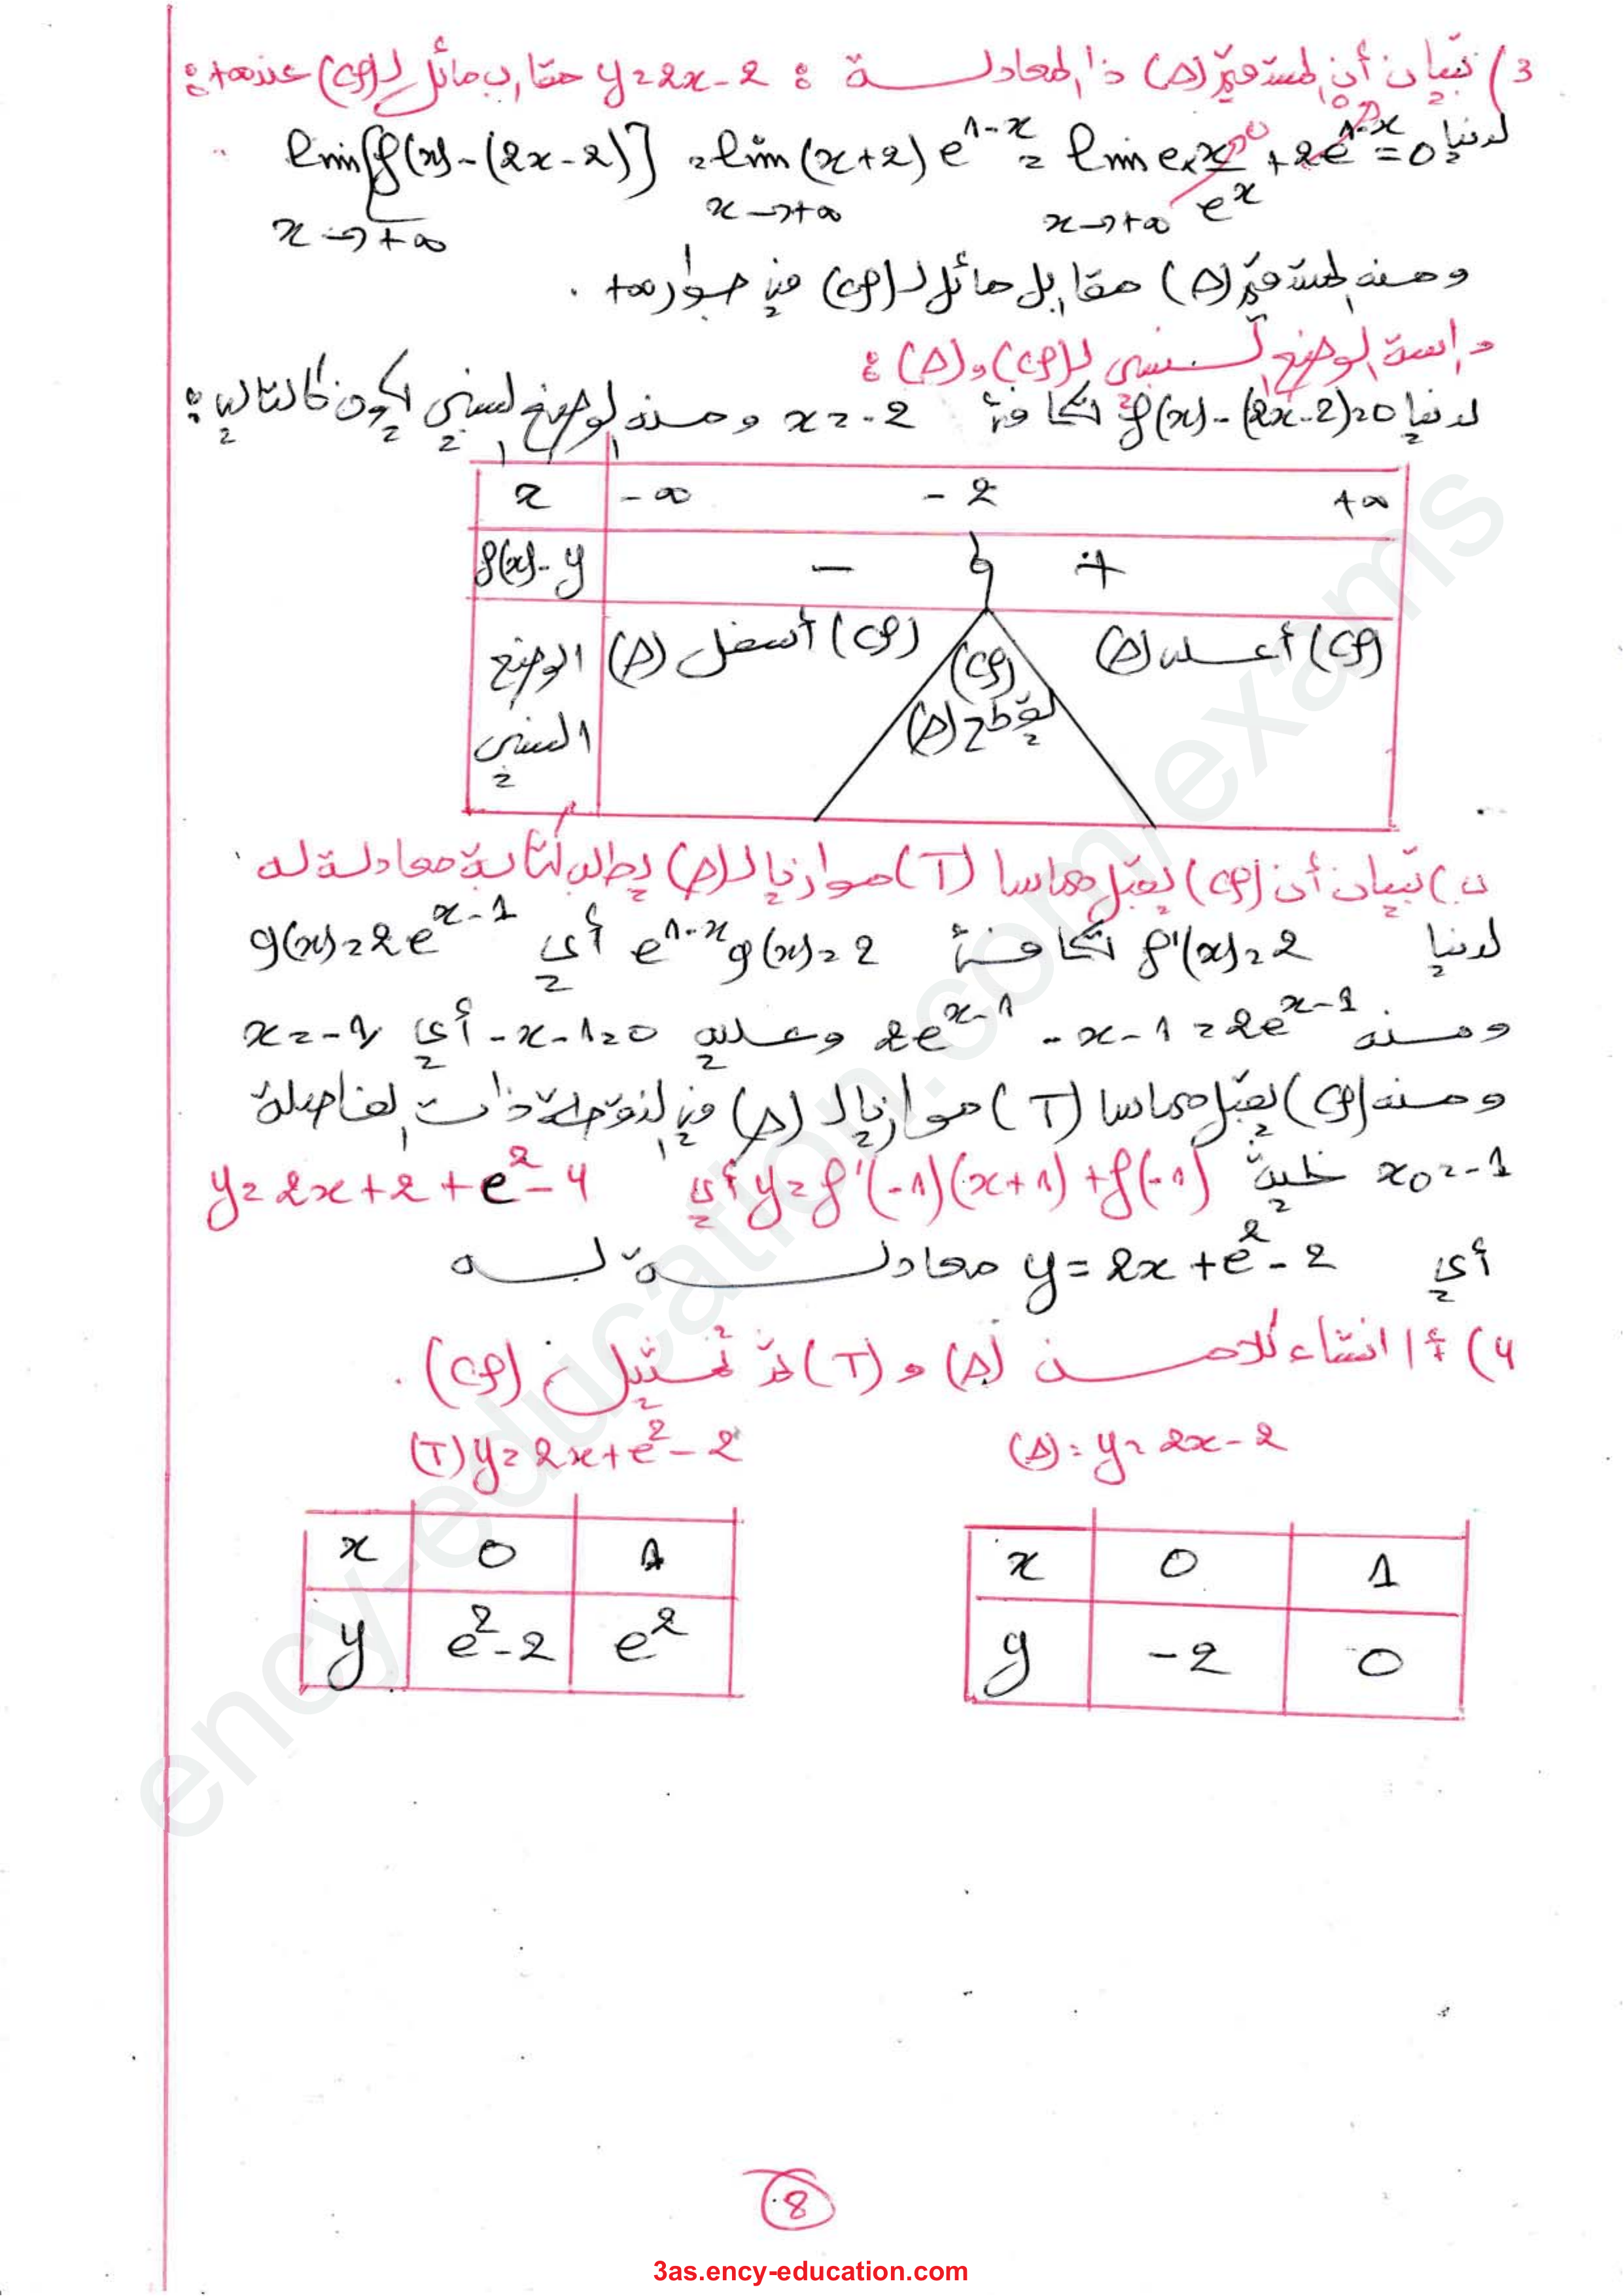 3) تبيان أن المستقيم (Δ) ذا المعادلة : y = 2x - 2 مقارب مائل لـ (Cf) عند +∞ :
لدينا lim [f(x) - (2x - 2)] = lim (x+2) e^{1-x} = lim e × x/e^x + 2e^{1-x} = 0
x→+∞ x→+∞ x→+∞
ومنه المستقيم (Δ) مقارب مائل لـ (Cf) في جوار +∞ .
دراسة الوضع النسبي لـ (Cf) و (Δ) :
لدينا f(x) - (2x - 2) = 0 تكافئ x = -2 ومنه الوضع النسبي يكون كالتالي :
x -∞ -2 +∞
f(x) - y - 0 +
الوضع النسبي (Cf) أسفل (Δ) (Cf) يقطع (Δ) (Cf) أعلى (Δ)
ب) تبيان أن (Cf) يقبل مماسا (T) موازيا لـ (Δ) يطلب كتابة معادلة له
لدينا f'(x) = 2 تكافئ e^{1-x} g(x) = 2 أي g(x) = 2e^{x-1}
ومنه 2e^{x-1} - x - 1 = 2e^{x-1} وعليه -x - 1 = 0 أي x = -1
ومنه (Cf) يقبل مماسا (T) موازيا لـ (Δ) في النقطة ذات الفاصلة
x₀ = -1 حيث y = f'(-1)(x+1) + f(-1) أي y = 2x + 2 + e² - 4
أي y = 2x + e² - 2 معادلة له
4) أ/ انشاء كلا من (Δ) و (T) ثم تمثيل (Cf) .
(Δ) : y = 2x - 2
(T) y = 2x + e² - 2
x 0 1
y -2 0
x 0 1
y e² - 2 e²
8
3as.ency-education.com
ency-education.com/exams